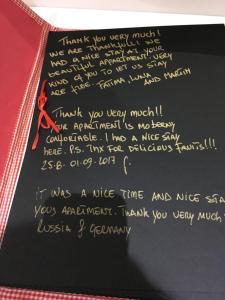 THANK YOU VERY MUCH!
WE ARE THANKFULL! WE
HAD A NICE STAY AT YOUR
BEAUTIFUL APPARTMENT! VERY
KIND OF YOU TO LET US STAY
ARE FIRE. FATIMA, LUNA
AND MARTIN
THANK YOU VERY MUCH!!
OUR APARTMENT IS MODERN,
COMFORABLE. I HAD A NICE STAY
HERE. P.S. THX FOR DELICIOUS FRUITS!!!
25.8. 01.09.2017
IT WAS A NICE TIME AND NICE STA
YOUS APARTMENT. THANK YOU VERY MUCH!
RUSSIA & GERMANY